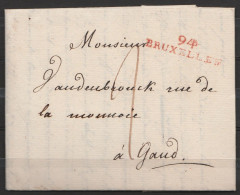 Monsieur
94
BRUXELLES
Vandenbronck rue de
la monnoie
à Gand.